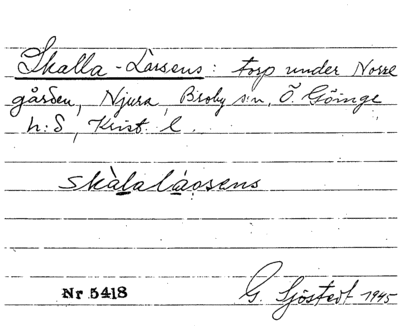 Skalla-Larsens: torp under Norre
gården, Njura, Broby sn, Ö. Göinge
h:d, Krist. l.
skàlalàosens
Nr 5418
G. Sjöstedt 1945